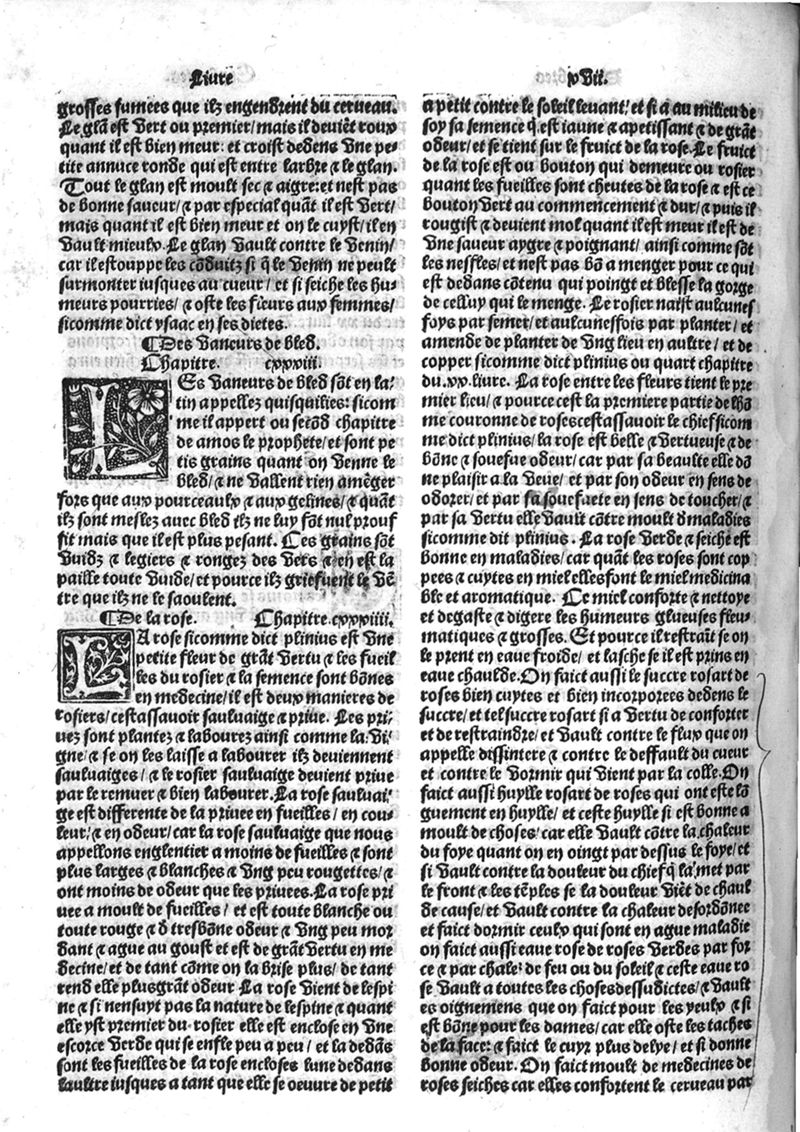 Liure
xVii.
grosses fumees que ilz engendrent du cerueau.
Le glã est Vert ou premier/mais il deuiẽt roux
quant il est bien meur: et croist dedens Vne pe-
tite annuce ronde qui est entre larbre ⁊ le glan.
Tout le glan est moult sec ⁊ aigre: et nest pas
de bonne saueur/⁊ par especial quãt il est Vert/
mais quant il est bien meur et on le cuyst/il en
Vault mieulx. Le glan Vault contre le Venin/
car il estouppe les cõduitz si q̃ le Venin ne peult
surmonter iusques au cueur/et si seiche les hu
meurs pourries/⁊ oste les fleurs aux femmes/
sicomme dict ysaac en ses dietes.
¶Des Vaneurs de bled.
Chapitre. cxxxiii.
LEs Vaneurs de bled sõt en la/
tin appellez quisquilies: sicom
me il appert ou secõd chapitre
de amos le prophete/et sont pe
tis grains quant on Venne le
bled/⁊ ne Vallent rien amẽger
fors que aux pourceaulx ⁊ aux gelines/⁊ quãt
ilz sont meslez auec bled ilz ne luy fõt nul prouf
fit mais que il est plus pesant. Ces grains sõt
Vuidz ⁊ legiers ⁊ rongez des Vers ⁊ en est la
paille toute Vuide/et pource ilz griefuent le Vẽ
tre que ilz ne le saoulent.
¶De la rose. Chapitre.cxxxiiii.
LA rose sicomme dict plinius est Vne
petite fleur de grãt Vertu ⁊ les fueil
les du rosier ⁊ la semence sont bõnes
en medecine/il est deux manieres de
rosiers/cestassauoir sauluaige ⁊ priue. Les pri/
uez sont plantez ⁊ labourez ainsi comme la Vi/
gne/⁊ se on les laisse a labourer ilz deuiennent
sauluaiges/⁊ le rosier sauluaige deuient priue
par le remuer ⁊ bien labourer. La rose sauluai/
ge est differente de la priuee en fueilles/en cou/
leur/⁊ en odeur/car la rose sauluaige que nous
appellons englentier a moins de fueilles ⁊ sont
plus larges ⁊ blanches ⁊ Vng peu rougettes/⁊
ont moins de odeur que les priuees. La rose pri
uee a moult de fueilles/et est toute blanche ou
toute rouge ⁊ d̃ tresbõne odeur ⁊ Vng peu mor
dant ⁊ ague au goust et est de grãt Vertu en me
decine/et de tant cõme on la brise plus/de tant
rend elle plusgrãt odeur La rose Vient de lespi
ne ⁊ si nensuyt pas la nature de lespine ⁊ quant
elle yst premier du rosier elle est enclose en Vne
escorce Verde qui se enfle peu a peu/et la dedãs
sont les fueilles de la rose encloses lune dedans
laultre iusques a tant que elle se oeuure de petit
a petit contre le soleil leuant: et si a au milieu de
soy sa semence q̃ est iaune ⁊ apetissant ⁊ de grãt
odeur/et se tient sur le fruict de la rose. Le fruict
de la rose est ou bouton qui demeure ou rosier
quant les fueilles sont cheutes de la rose ⁊ est ce
bouton Vert au commencement ⁊ dur/⁊ puis il
rougist ⁊ deuient mol quant il est meur il est de
Vne saueur aygre ⁊ poignant/ainsi comme sõt
les neffles/et nest pas bõ a menger pour ce qui
est dedans cõtenu qui poingt et blesse la gorge
de celluy qui le menge. Le rosier naist aulcunes
foys par semer/et aulcunesfois par planter/et
amende de planter de Vng lieu en aultre/et de
copper sicomme dict plinius ou quart chapitre
du.xx.liure. La rose entre les fleurs tient le pre
mier lieu/⁊ pource cest la premiere partie de lhõ
me couronne de roses cestassauoir le chief sicom
me dict plinius/la rose est belle ⁊ Vertueuse ⁊ de
bõne ⁊ souefue odeur/car par sa beaulte elle dõ
ne plaisir a la Veue/et par son odeur en sens de
odorer/et par sa souefuete en sens de toucher/⁊
par sa Vertu elle Vault cõtre moult d̃ maladies
sicomme dit plinius. La rose Verde ⁊ seiche est
bonne en maladies/car quãt les roses sont cop
pees ⁊ cuytes en miel elles font le miel medicina
ble et aromatique. Ce miel conforte ⁊ nettoye
et degaste ⁊ digere les humeurs glueuses fleu-
matiques ⁊ grosses. Et pource il restraĩt se on
le prent en eaue froide/et lasche se il est prins en
eaue chaulde. On faict aussi le succre rosart de
roses bien cuytes et bien incorporees dedens le
succre/et tel succre rosart si a Vertu de conforter
et de restraindre/et Vault contre le flux que on
appelle dissintere ⁊ contre le deffault du cueur
et contre le Vormir qui Vient par la colle. On
faict aussi huylle rosart de roses qui ont este lõ
guement en huylle/et ceste huylle si est bonne a
moult de choses/car elle Vault cõtre la chaleur
du foye quant on en oingt par dessus le foye/et
si Vault contre la douleur du chief q̃ la met par
le front ⁊ les tẽples se la douleur Viẽt de chaul
de cause/et Vault contre la chaleur desordõnee
et faict dormir ceulx qui sont en ague maladie
on faict aussi eaue rose de roses Verdes par for
ce ⁊ par chale: de feu ou du soleil ⁊ ceste eaue ro
se Vault a toutes les choses dessudictes/⁊ Vault
es oignemens que on faict pour les yeulx ⁊ si
est bõne pour les dames/car elle oste les taches
de la face: ⁊ faict le cuyr plus delye/et si donne
bonne odeur. On faict moult de medecines de
roses seiches car elles confortent le cerueau par